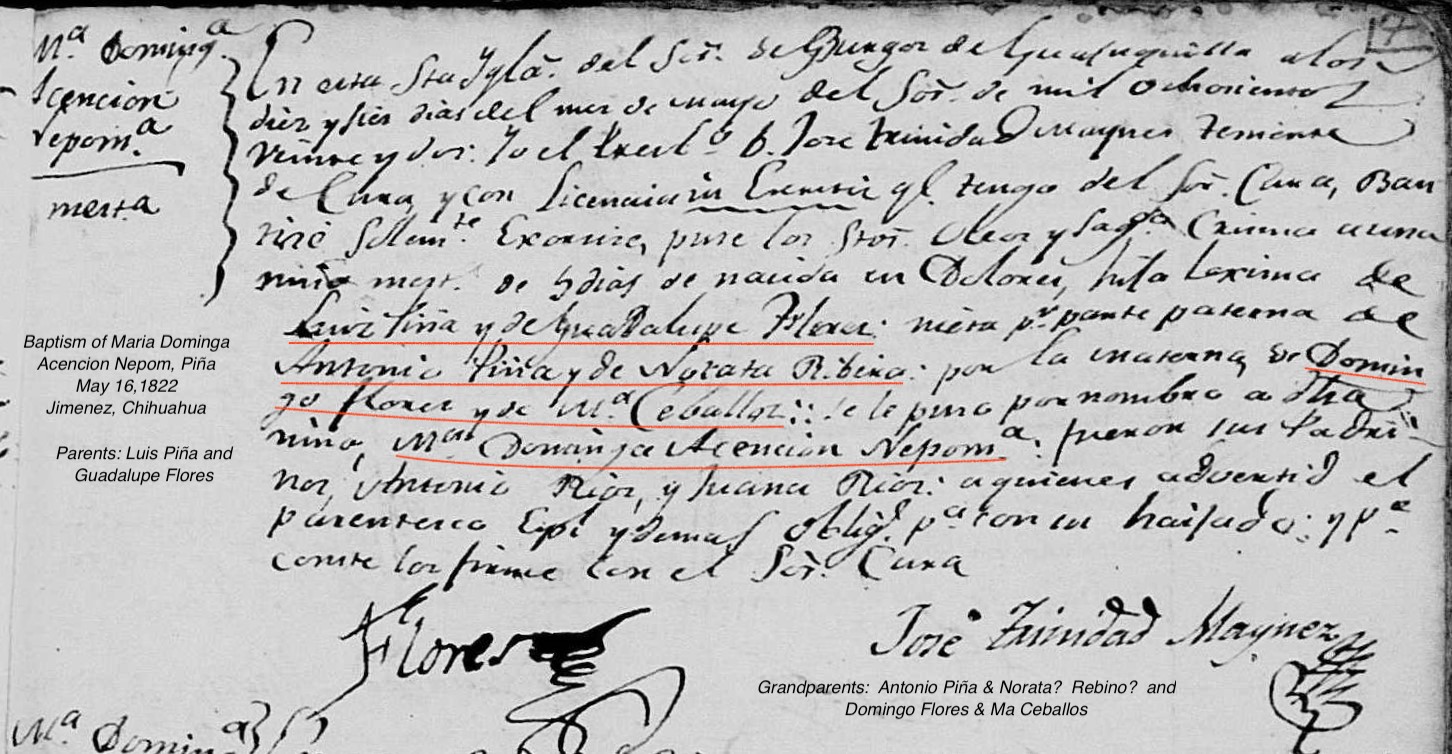 17
Mª Domingª
Acencion
Nepomª
mest.a
En esta Sta Yglã. del Sór. de de Guajuquilla a los
diez y seis dias del mes de Mayo del Sór. de mil Ochocientos
Veinte y dos: Yo el B. Jose trinidad Maynez Teniente
de Cura y con Licencia in qe. tengo del Sór. Cura, Bau
tizé Solemte. Exorcize, puse los Stos. Oleos y Sagdo Crisma a una
niña mest. de 5 dias de nacida en Dolores, hija lexitima de
Luiz Piña y de Guadalupe Flores: nieta pr. parte paterna de
Antonio Piña y de Norata Ribera: por la materna, de Domin
go Flores y de Mª Ceballos:: se le puso por nombre a dha
niña, Mª Dominga Acencion Nepomª: fueron sus Padri-
nos, Antonio Rios, y Juana Rios: a quienes adverti el
parentesco Espl y demas oblig. pª con su haijado: y pª
conste los firme con el Sór. Cura
Flores
José Trinidad Maynez
Mª Dominª
Baptism of Maria Dominga
Acencion Nepom, Piña
May 16,1822
Jimenez, Chihuahua
Parents: Luis Piña and
Guadalupe Flores
Grandparents: Antonio Piña & Norata? Rebino? and
Domingo Flores & Ma Ceballos